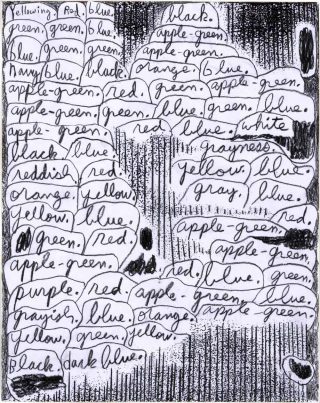 Yellowing. Red. blue. black.
green. green. blue. apple-green.
blue. green. green. apple-green.
Navy blue. black. orange. blue.
apple-green. red. green. apple-green.
apple-green. green. blue. green. blue.
apple-green. red. blue. white
black. blue. grayness.
reddish red. yellow. blue.
orange. yellow. gray. blue.
yellow. blue. red.
green. red. apple-green.
apple-green. red. blue. green.
purple. red. apple-green. blue.
grayish. blue. orange. apple green.
yellow. green. yellow.
Black. dark blue.